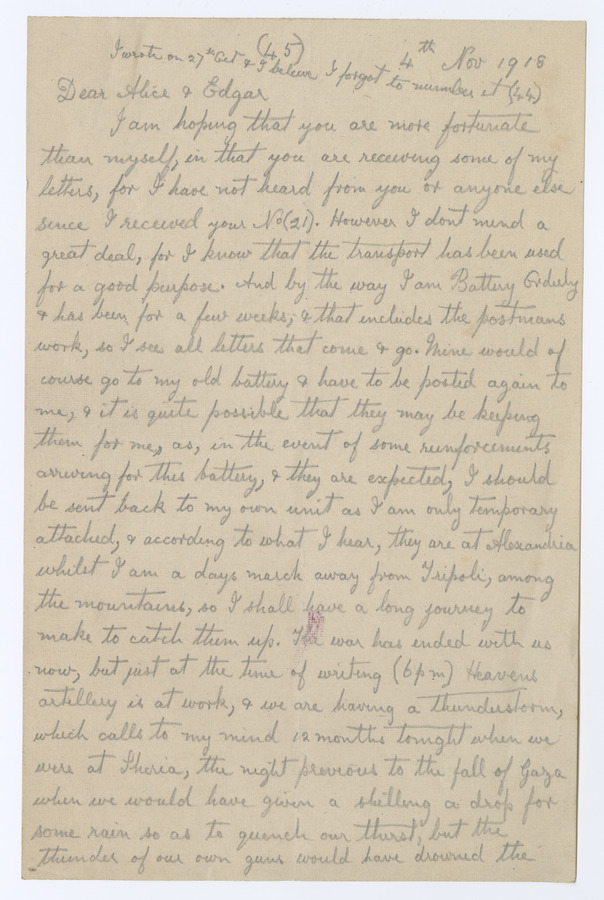 I wrote on 27th Oct & I believe I forgot to number it (44)
(45)
4th Nov 1918
Dear Alice & Edgar
I am hoping that you are more fortunate
than myself, in that you are receiving some of my
letters, for I have not heard from you or anyone else
since I received your No(21). However I dont mind a
great deal, for I know that the transport has been used
for a good purpose. And by the way I am Battery Orderly
& has been for a few weeks, & that includes the postmans
work, so I see all letters that come & go. Mine would of
course go to my old battery & have to be posted again to
me, & it is quite possible that they may be keeping
them for me, as, in the event of some reinforcements
arriving for this battery, & they are expected, I should
be sent back to my own unit as I am only temporary
attached, & according to what I hear, they are at Alexandria
whilst I am a days march away from Tripoli, among
the mountains, so I shall have a long journey to
make to catch them up. The war has ended with us
now, but just at the time of writing (6pm) Heavens
artillery is at work, & we are having a thunderstorm,
which calls to my mind 12 months tonight when we
were at Sheria, the night previous to the fall of Gaza
when we would have given a shilling a drop for
some rain so as to quench our thirst, but the
thunder of our own guns would have drowned the